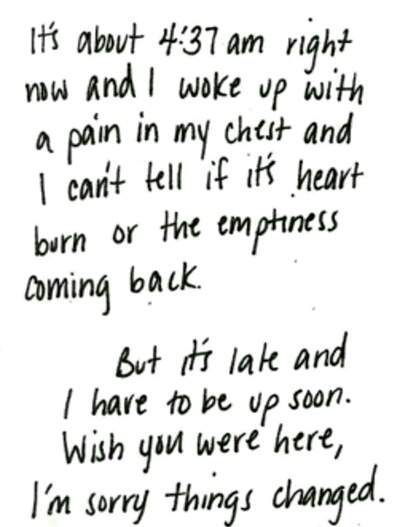 It's about 4:37 am right
now and I woke up with
a pain in my chest and
I can't tell if it's heart
burn or the emptiness
coming back.
But it's late and
I have to be up soon.
Wish you were here,
I'm sorry things changed.